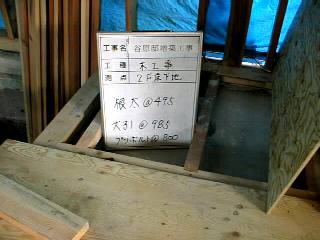 工事名 谷原邸増築工事
工種 木工事
測点 2F床下地
根太@495
大引@985
アンカーボルト@800